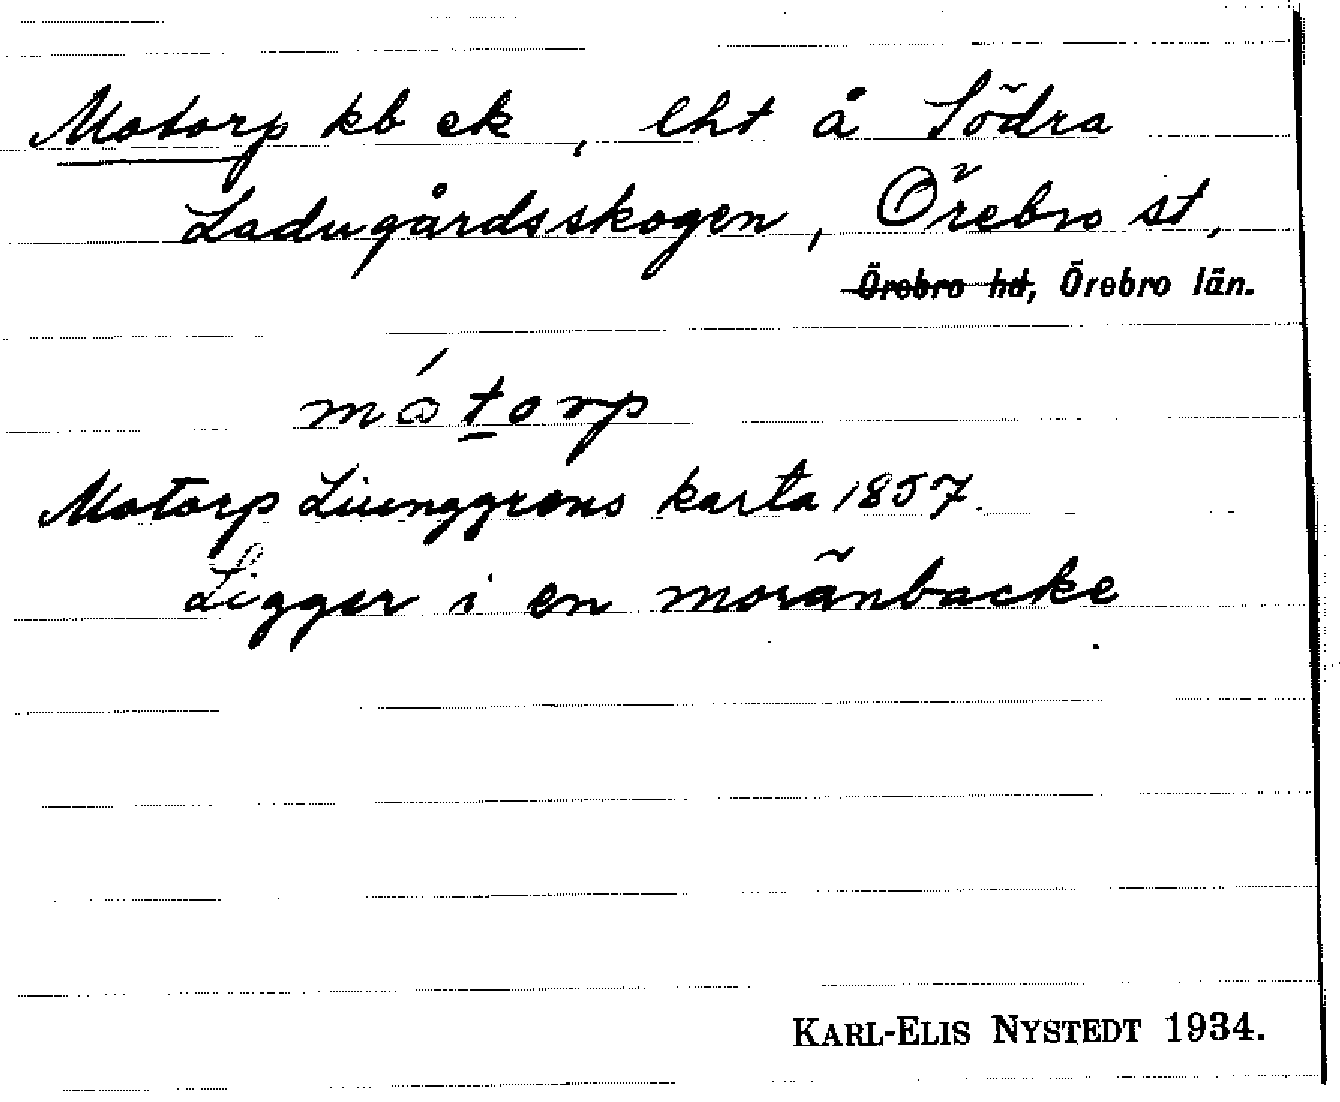 Motorp kb ek, lht å Södra
Ladugårdsskogen, Örebro st,
Örebro hd, Örebro län.
mótorp
Motorp Liunggrens karta 1857.
Ligger i en moränbacke
KARL-ELIS NYSTEDT 1934.